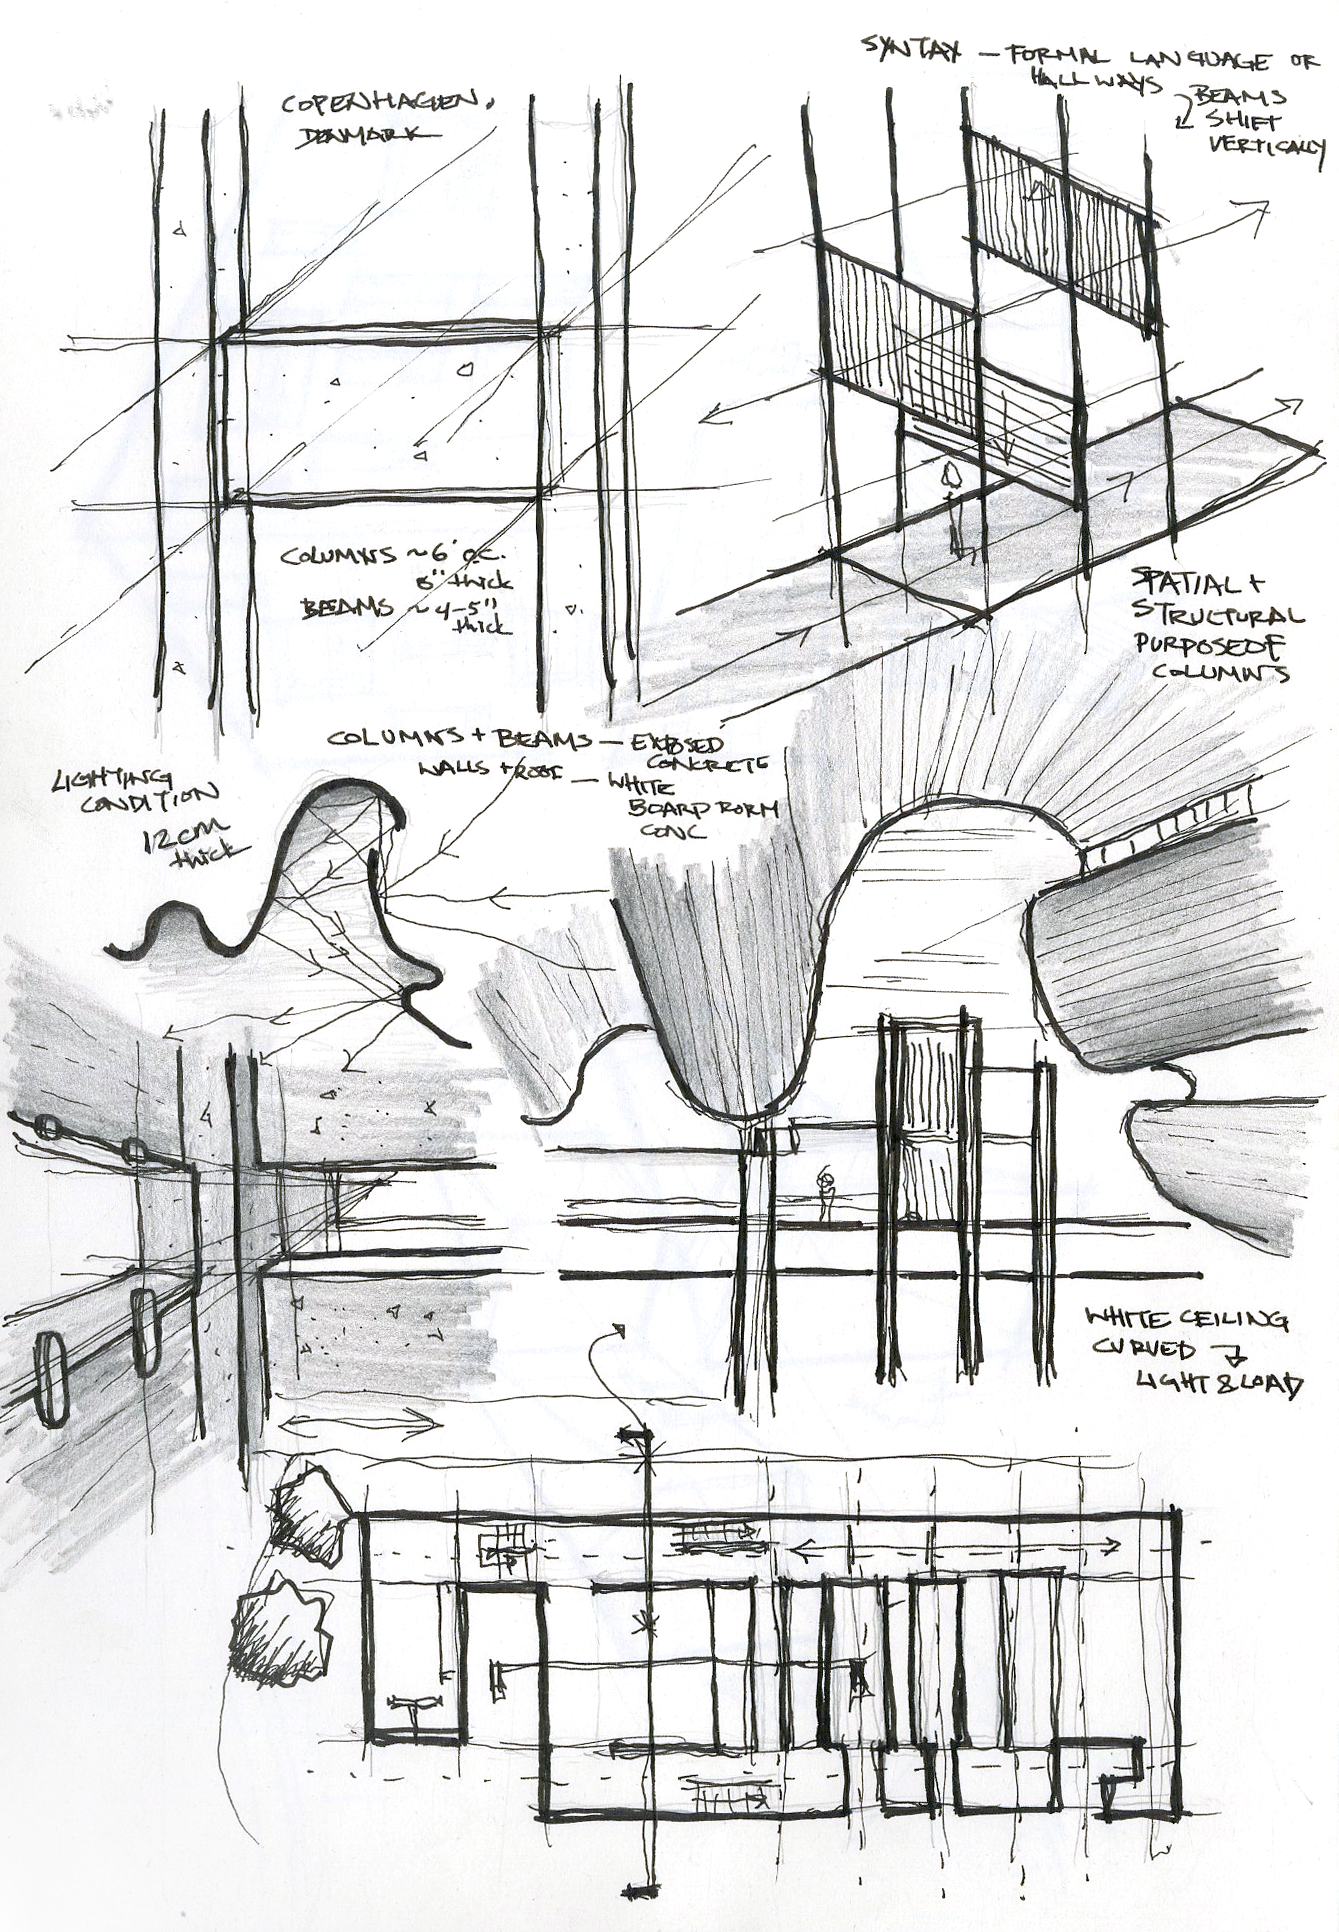 SYNTAX — FORMAL LANGUAGE OF
HALLWAYS
BEAMS
SHIFT
VERTICALLY
COPENHAGEN,
DENMARK
COLUMNS ~6' O.C.
8" thick
BEAMS ~4-5"
thick
SPATIAL +
STRUCTURAL
PURPOSE OF
COLUMNS
COLUMNS + BEAMS — EXPOSED
CONCRETE
WALLS + ROOF — WHITE
BOARD FORM
CONC
LIGHTING
CONDITION
12cm
thick
WHITE CEILING
CURVED
LIGHT & LOAD